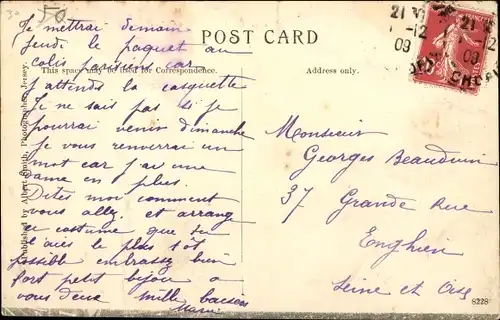 50
Je mettrai demain
Jeudi le paquet au
colis parisiens car
j'attends la casquette
Je ne sais pas si je
pourrai venir dimanche
Je vous renverrai un
mot car j'ai une
dame en plus.
Dites moi comment
vous allez. et arrange
ce costume que tu
l'aies le plus tôt
possible embrassez bien
fort petit bijou a
vous deux mille baisers
POST CARD
This space may be used for Correspondence.
Address only.
21
-12
09
21
-12
09
Monsieur
Georges Beauduin
37 Grande Rue
Enghien
Seine et Oise
Published by Albert Smith, Photographer, Jersey.
8228